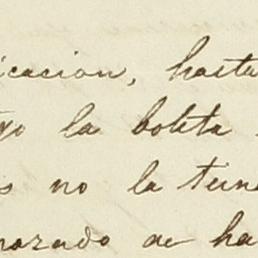 icacion, hasta
go la boleta
s no la tene
morado de ha